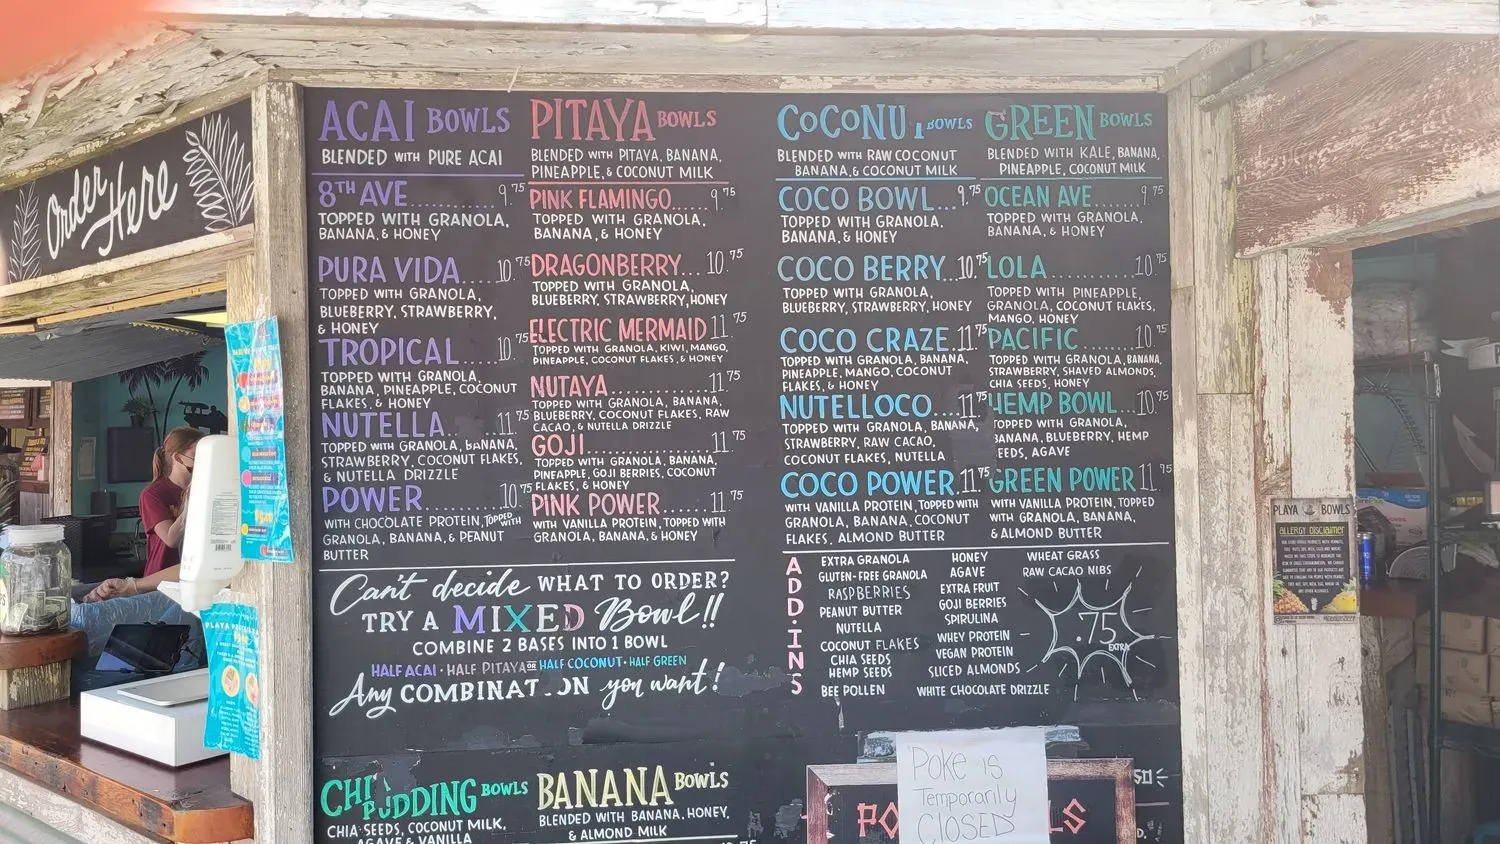 Order Here
ACAI BOWLS
BLENDED WITH PURE ACAI
8TH AVE.......... 9.75
TOPPED WITH GRANOLA,
BANANA, & HONEY
PURA VIDA.....10.75
TOPPED WITH GRANOLA,
BLUEBERRY, STRAWBERRY,
& HONEY
TROPICAL.....10.75
TOPPED WITH GRANOLA,
BANANA, PINEAPPLE, COCONUT
FLAKES, & HONEY
NUTELLA.....11.75
TOPPED WITH GRANOLA, BANANA,
STRAWBERRY, COCONUT FLAKES,
& NUTELLA DRIZZLE
POWER..........10.75
WITH CHOCOLATE PROTEIN, TOPPED WITH
GRANOLA, BANANA, & PEANUT
BUTTER
PITAYA BOWLS
BLENDED WITH PITAYA, BANANA,
PINEAPPLE, & COCONUT MILK
PINK FLAMINGO.....9.75
TOPPED WITH GRANOLA,
BANANA, & HONEY
DRAGONBERRY...10.75
TOPPED WITH GRANOLA,
BLUEBERRY, STRAWBERRY, HONEY
ELECTRIC MERMAID 11.75
TOPPED WITH GRANOLA, KIWI, MANGO,
PINEAPPLE, COCONUT FLAKES, & HONEY
NUTAYA............11.75
TOPPED WITH GRANOLA, BANANA,
BLUEBERRY, COCONUT FLAKES, RAW
CACAO, & NUTELLA DRIZZLE
GOJI...............11.75
TOPPED WITH GRANOLA, BANANA,
PINEAPPLE, GOJI BERRIES, COCONUT
FLAKES, & HONEY
PINK POWER......11.75
WITH VANILLA PROTEIN, TOPPED WITH
GRANOLA, BANANA, & HONEY
COCONU BOWLS
BLENDED WITH RAW COCONUT
BANANA, & COCONUT MILK
COCO BOWL...9.75
TOPPED WITH GRANOLA.
BANANA, & HONEY
COCO BERRY.10.75
TOPPED WITH GRANOLA,
BLUEBERRY, STRAWBERRY, HONEY
COCO CRAZE.11.75
TOPPED WITH GRANOLA, BANANA,
PINEAPPLE, MANGO, COCONUT
FLAKES, & HONEY
NUTELLOCO...11.75
TOPPED WITH GRANOLA, BANANA,
STRAWBERRY, RAW CACAO,
COCONUT FLAKES, NUTELLA
COCO POWER.11.75
WITH VANILLA PROTEIN, TOPPED WITH
GRANOLA, BANANA, COCONUT
FLAKES, ALMOND BUTTER
GREEN BOWLS
BLENDED WITH KALE, BANANA,
PINEAPPLE, COCONUT MILK
OCEAN AVE.....9.75
TOPPED WITH GRANOLA,
BANANA, & HONEY
LOLA...........10.75
TOPPED WITH PINEAPPLE,
GRANOLA, COCONUT FLAKES,
MANGO, HONEY
PACIFIC........10.75
TOPPED WITH GRANOLA, BANANA,
STRAWBERRY, SHAVED ALMONDS,
CHIA SEEDS, HONEY
HEMP BOWL...10.75
TOPPED WITH GRANOLA,
BANANA, BLUEBERRY, HEMP
EEDS, AGAVE
GREEN POWER 11.75
WITH VANILLA PROTEIN, TOPPED
WITH GRANOLA, BANANA,
& ALMOND BUTTER
Can't decide WHAT TO ORDER?
TRY A MIXED Bowl!!
COMBINE 2 BASES INTO 1 BOWL
HALF ACAI · HALF PITAYA OR HALF COCONUT · HALF GREEN
Any COMBINAT ON you want!
ADD·INS
EXTRA GRANOLA
GLUTEN-FREE GRANOLA
RASPBERRIES
PEANUT BUTTER
NUTELLA
COCONUT FLAKES
CHIA SEEDS
HEMP SEEDS
BEE POLLEN
HONEY
AGAVE
EXTRA FRUIT
GOJI BERRIES
SPIRULINA
WHEY PROTEIN
VEGAN PROTEIN
SLICED ALMONDS
WHITE CHOCOLATE DRIZZLE
WHEAT GRASS
RAW CACAO NIBS
.75
EXTRA
CHI PUDDING BOWLS
CHIA SEEDS, COCONUT MILK,
AGAVE & VANILLA
BANANA BOWLS
BLENDED WITH BANANA, HONEY,
& ALMOND MILK
POKE IS
Temporarily
CLOSED
PLAYA BOWLS
ALLERGY DISCLAIMER